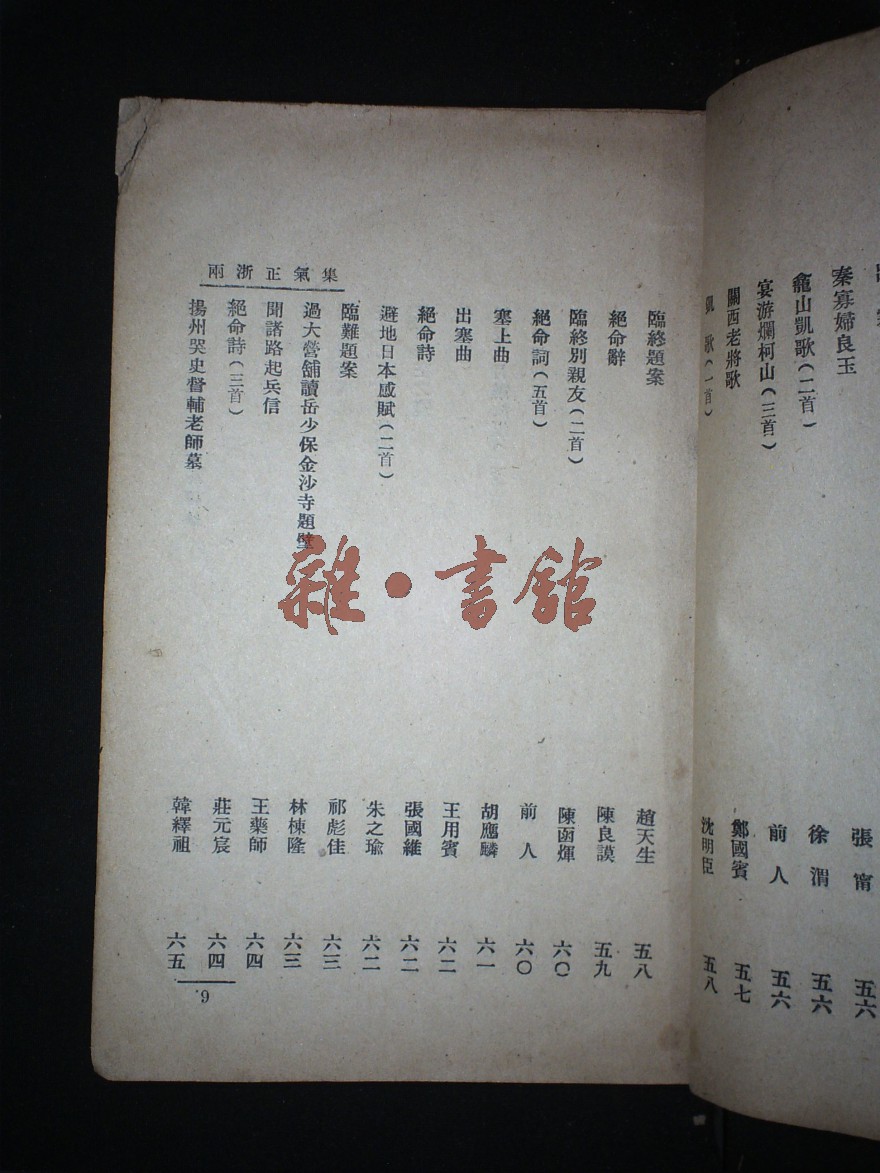 秦寡婦良玉 張甯 五六
龕山凱歌(二首) 徐渭 五六
宴游爛柯山(三首) 前人 五六
關西老將歌 鄭國賓 五七
凱歌(一首) 沈明臣 五八
臨終題案 趙天生 五八
絕命辭 陳良謨 五九
臨終別親友(二首) 陳函煇 六〇
絕命詞(五首) 前人 六〇
塞上曲 胡應麟 六一
出塞曲 王用賓 六二
絕命詩 張國維 六二
避地日本感賦(二首) 朱之瑜 六二
臨難題案 祁彪佳 六三
過大營舖讀岳少保金沙寺題壁 林棟隆 六三
聞諸路起兵信 王藥師 六四
絕命詩(三首) 莊元宸 六四
揚州哭史督輔老師墓 韓繹祖 六五
集氣正浙兩
9
雜·書館